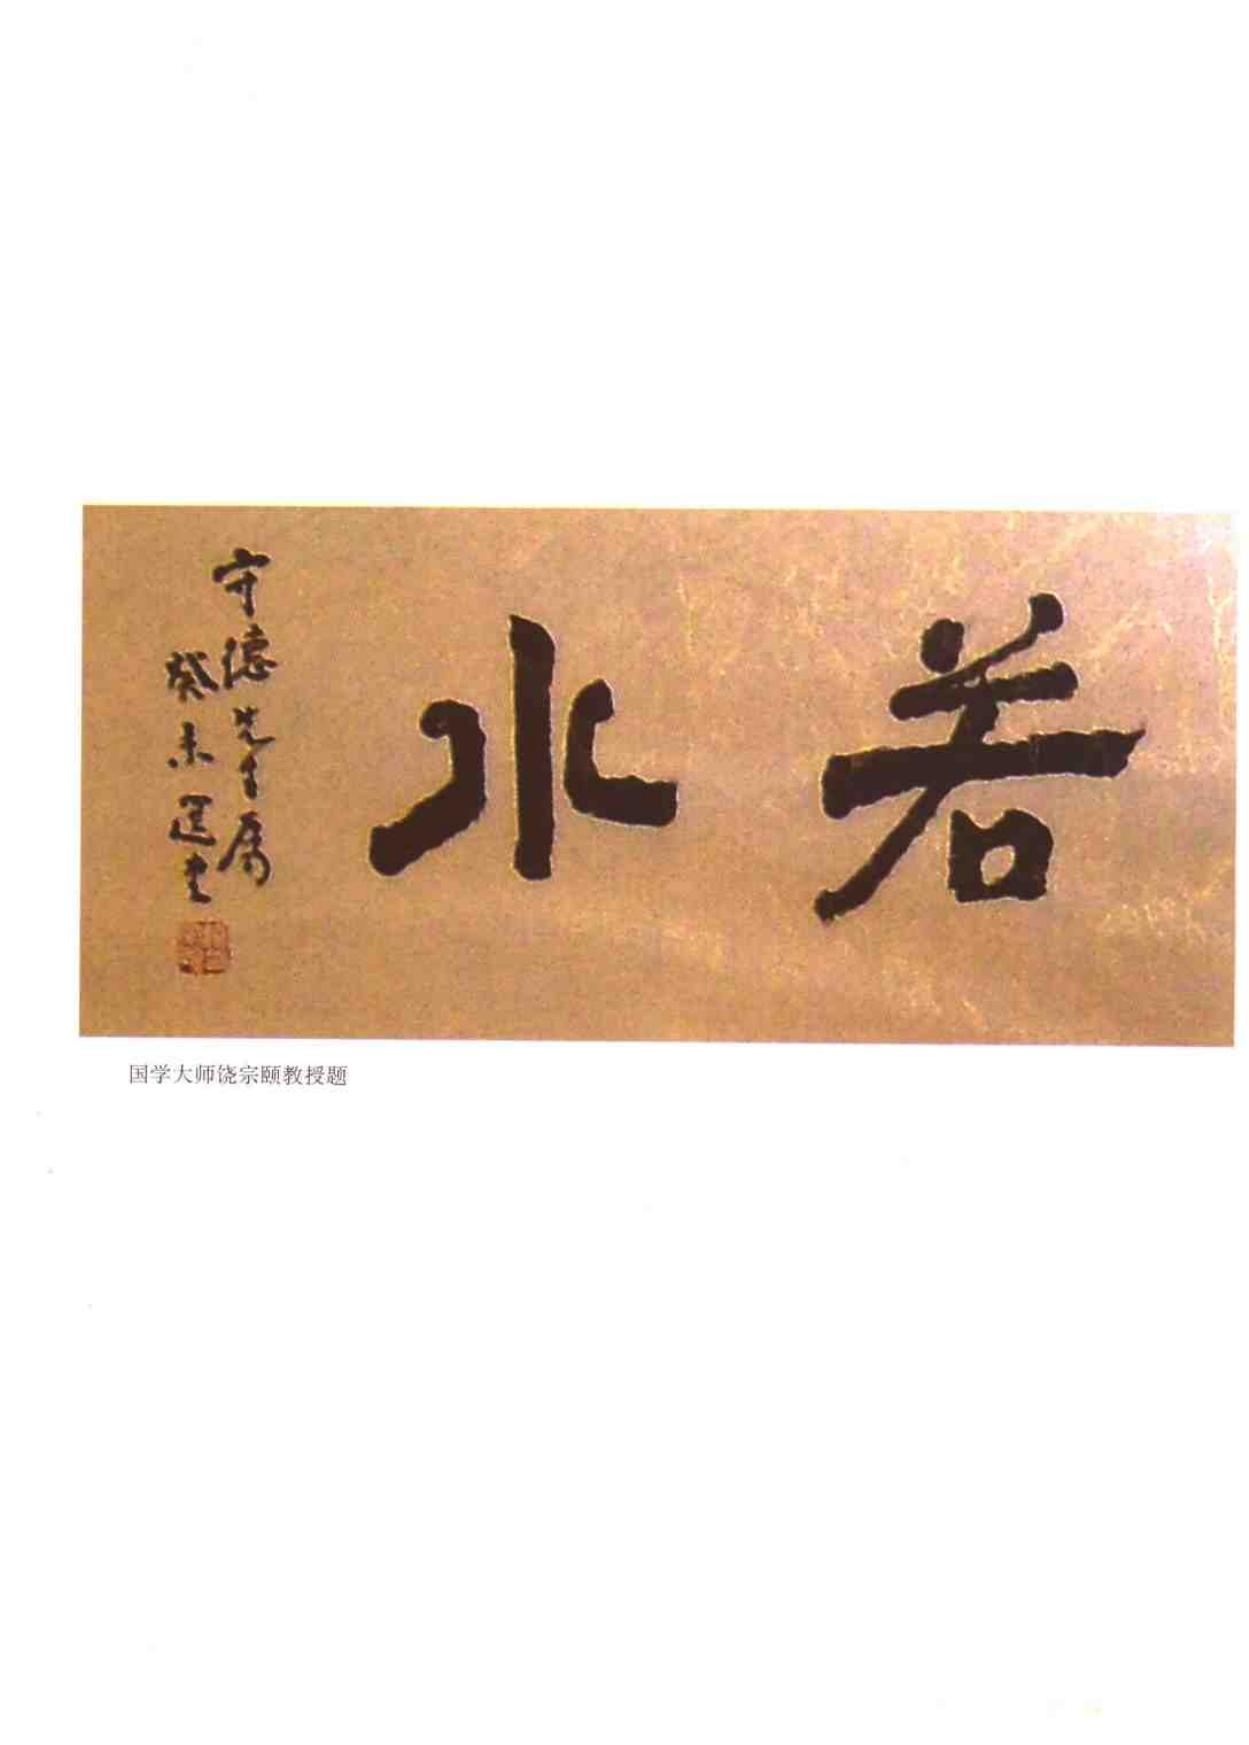 若水
守德先生属
癸未選堂
国学大师饶宗颐教授题